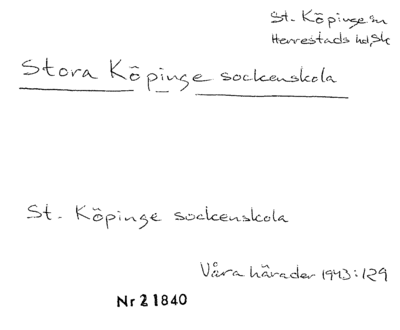 St. Köpinge sn
Herrestads hd, Sk
Stora Köpinge sockenskola
St. Köpinge sockenskola
Våra härader 1943:129
Nr 21840